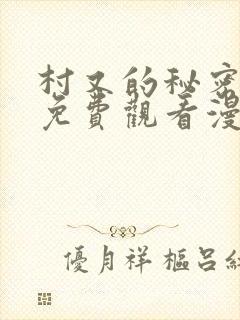 村又的秘密
免費觀看漫
優月祥 樞呂紅